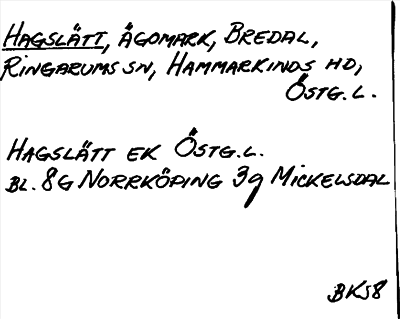 HAGSLÄTT, ÄGOMARK, BREDAL,
RINGARUMS SN, HAMMARKINDS HD,
ÖSTG.L.
HAGSLÄTT EK ÖSTG.L.
BL. 8G NORRKÖPING 3g MICKELSDAL
BKS8